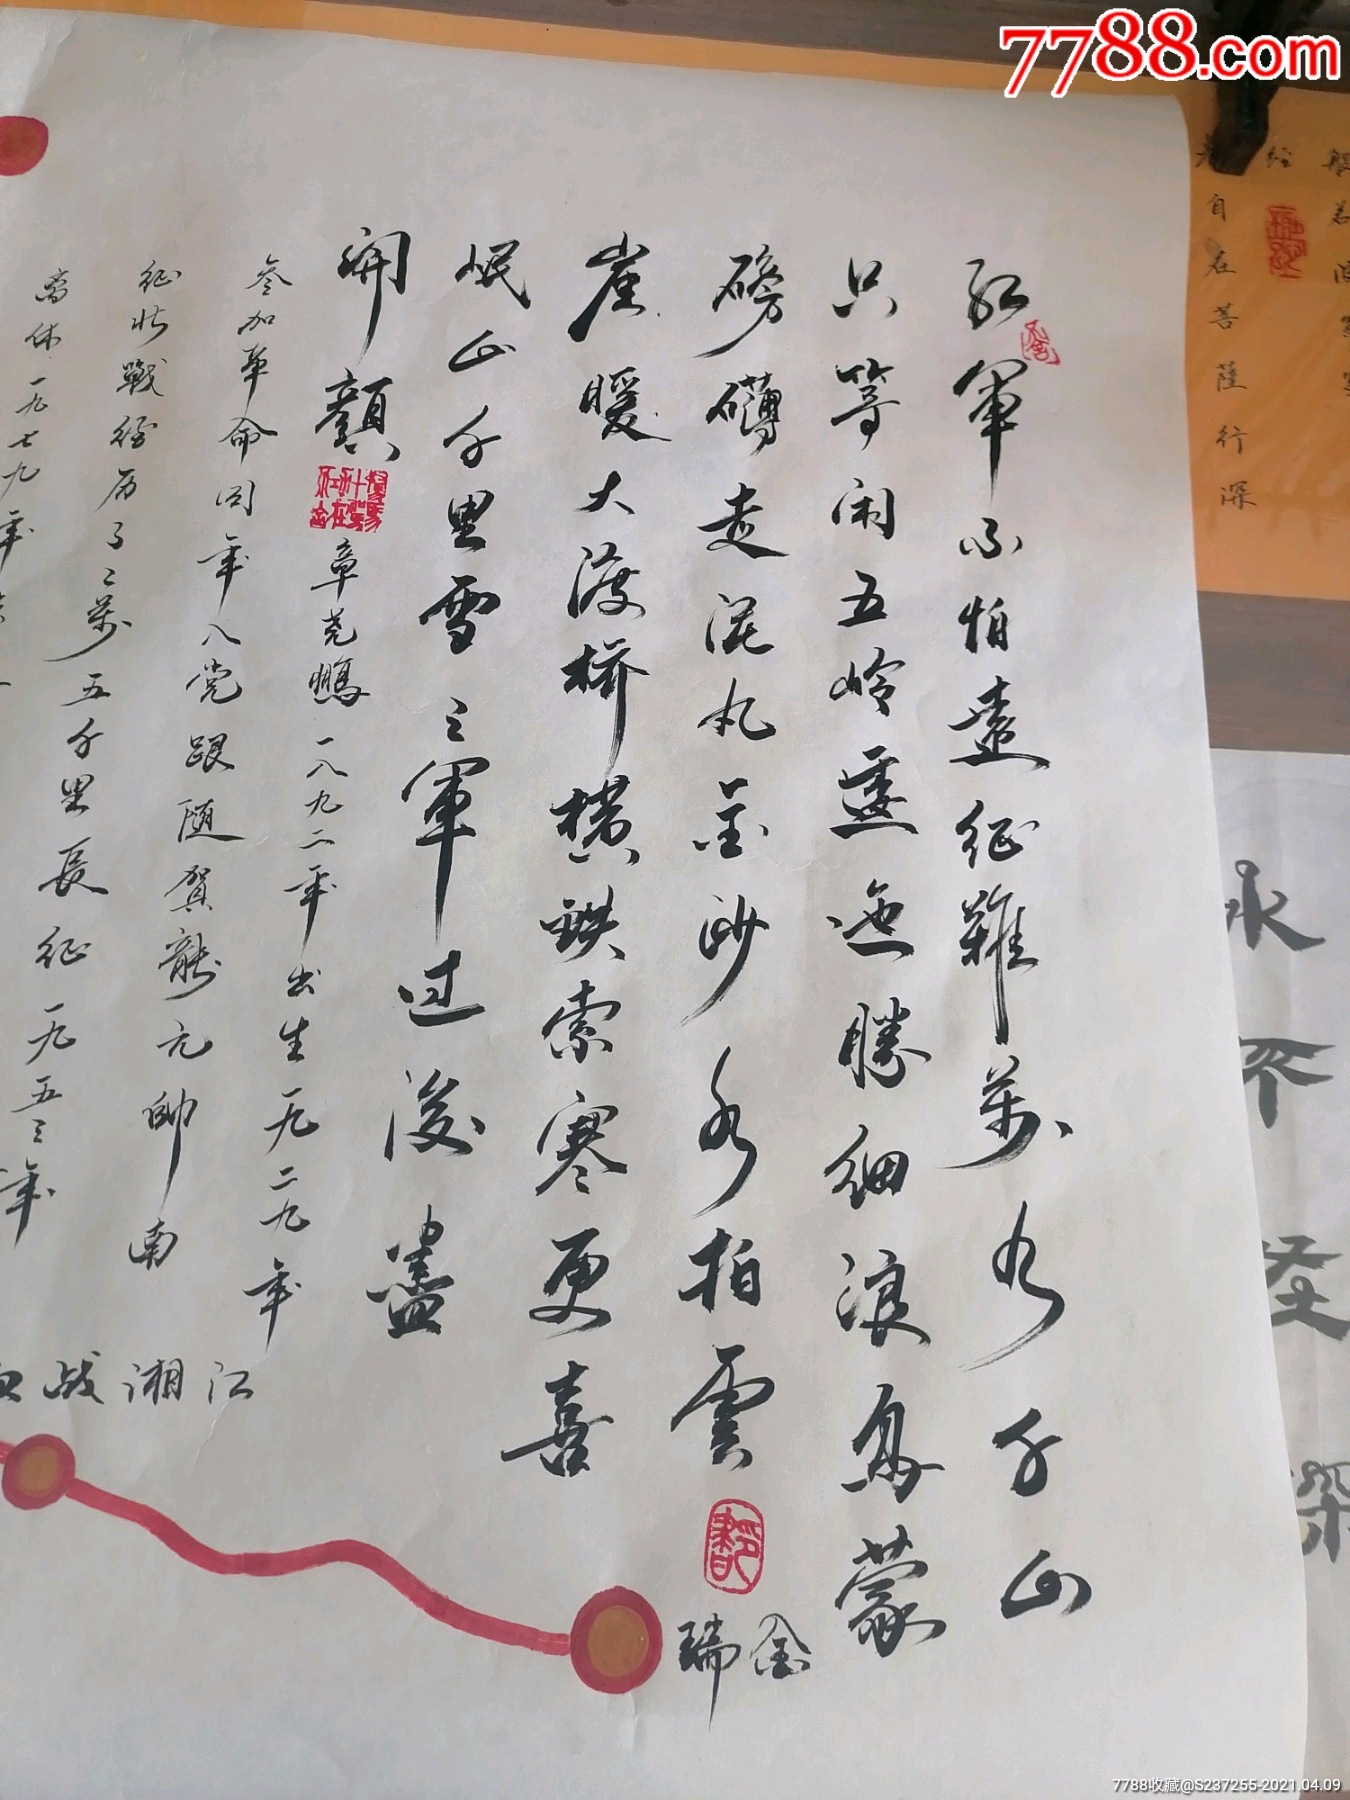 7788.com
紅軍不怕遠征難萬水千山
只等闲五岭逶迤腾细浪烏蒙
磅礴走泥丸金沙水拍雲
崖暖大渡桥横鉄索寒更喜
岷山千里雪三軍过後盡
開顏
章尧鵬一八九二年出生一九二九年
参加革命同年入党跟随贺龍元帥南
征北戰经历了二萬五千里長征一九五三年
离休一九七九年
江湘战血
金瑞
般若
经
自在菩薩行深
水不
深
7788收藏@S237255-2021.04.09